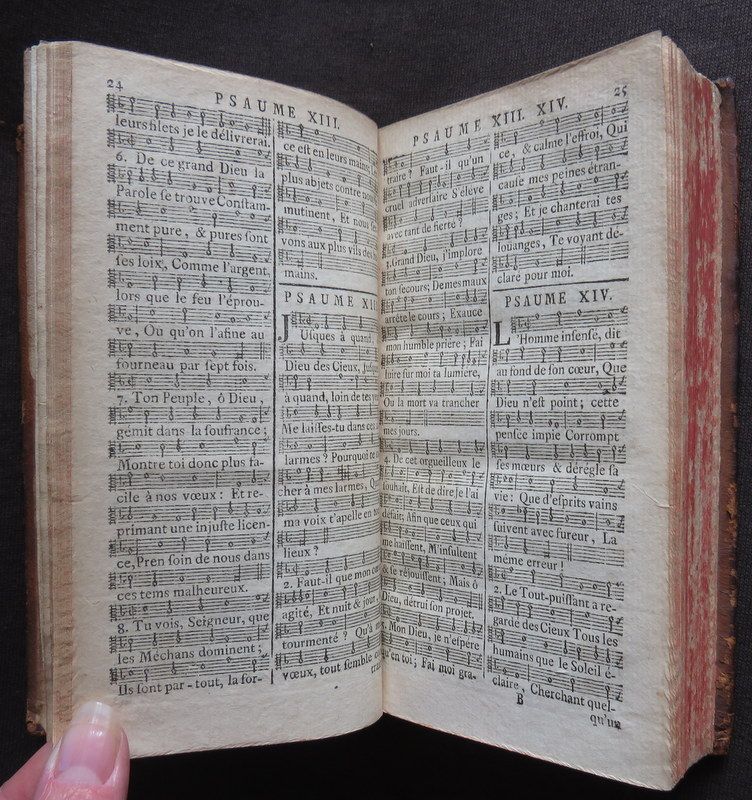 24
PSAUME XIII.
leurs filets je le délivrerai.
6. De ce grand Dieu la
Parole se trouve Constam-
ment pure, & pures sont
ses loix, Comme l'argent,
lors que le feu l'éprou-
ve, Ou qu'on l'afine au
fourneau par sept fois.
7. Ton Peuple, ô Dieu,
gémit dans la soufrance;
Montre toi donc plus fa-
cile à nos vœux: Et re-
primant une injuste licen-
ce, Pren soin de nous dans
ces tems malheureux.
8. Tu vois, Seigneur, que
les Méchans dominent;
Ils sont par-tout, la for-
ce est en leurs mains;
plus abjets contre nous
mutinent, Et nous
vons aux plus vils des
mains.
PSAUME XIII
JUsques à quand,
Dieu des Cieux,
à quand, loin de tes
Me laisses-tu dans ces
larmes? Pourquoi te
cher à mes larmes,
ma voix t'apelle en
lieux?
2. Faut-il que mon
agité, Et nuit & jour,
tourmenté? Qu'à
vœux, tout semble
25
PSAUME XIII. XIV.
traire? Faut-il qu'un
cruel adversaire S'éleve
avec tant de fierté?
3. Grand Dieu, j'implore
ton secours; De mes maux
arrête le cours; Exauce
mon humble priére; Fai
luire sur moi ta lumiére,
Ou la mort va trancher
mes jours.
4. De cet orgueilleux le
souhait, Est de dire je l'ai
défait; Afin que ceux qui
me haïssent, M'insultent
& se réjouïssent; Mais ô
Dieu, détrui son projet.
Mon Dieu, je n'espére
qu'en toi; Fai moi gra-
ce, & calme l'effroi, Qui
cause mes peines étran-
ges; Et je chanterai tes
louanges, Te voyant dé-
claré pour moi.
PSAUME XIV.
L'Homme insensé, dit
au fond de son cœur, Que
Dieu n'est point; cette
pensée impie Corrompt
ses mœurs & dérégle sa
vie: Que d'esprits vains
suivent avec fureur, La
même erreur!
2. Le Tout-puissant a re-
garde des Cieux Tous les
humains que le Soleil é-
claire, Cherchant quel-
B
qu'un